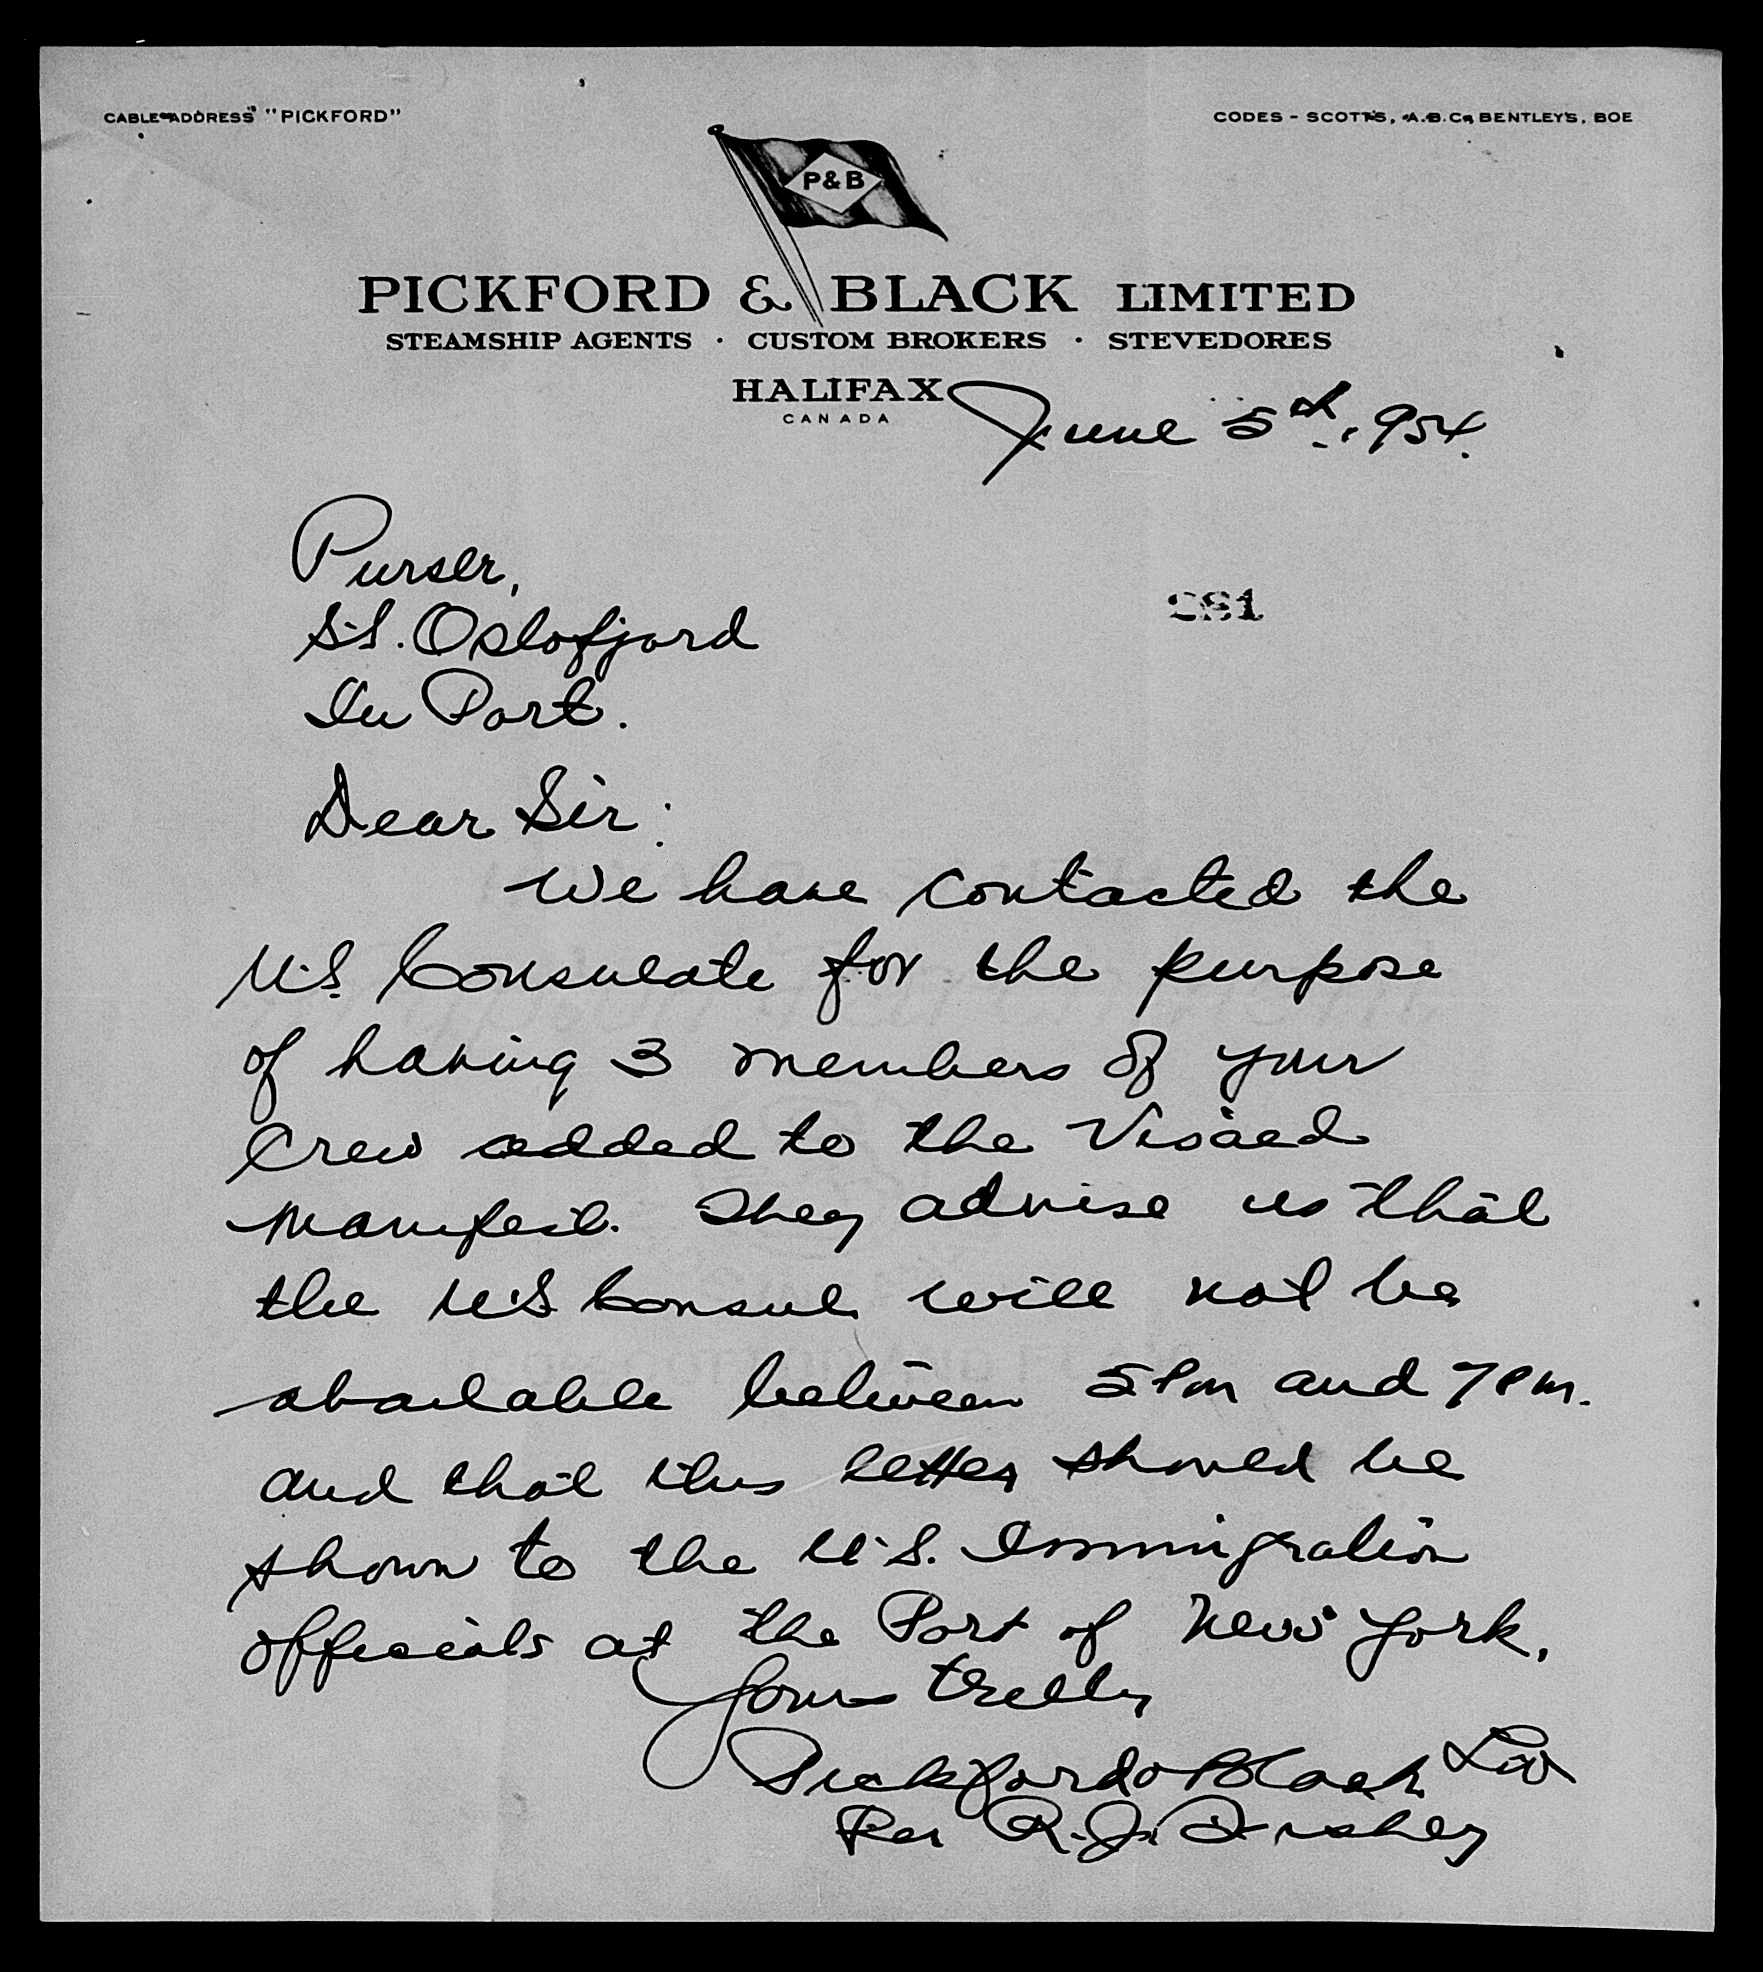 CABLE ADDRESS "PICKFORD"
CODES - SCOTT'S, A.B.C., BENTLEY'S, BOE
P&B
PICKFORD & BLACK LIMITED
STEAMSHIP AGENTS · CUSTOM BROKERS · STEVEDORES
HALIFAX
CANADA
June 5th, 1954.
Purser,
S.S. Oslofjord
In Port.
281
Dear Sir:
We have contacted the
U.S. Consulate for the purpose
of having 3 members of your
Crew added to the Visaed
Manifest. They advise us that
the U.S Consul will not be
available between 5 PM and 7 PM.
and that this letter should be
shown to the U.S. Immigration
officials at the Port of New York.
Yours truly
Pickford & Black Ltd
Per R. J.